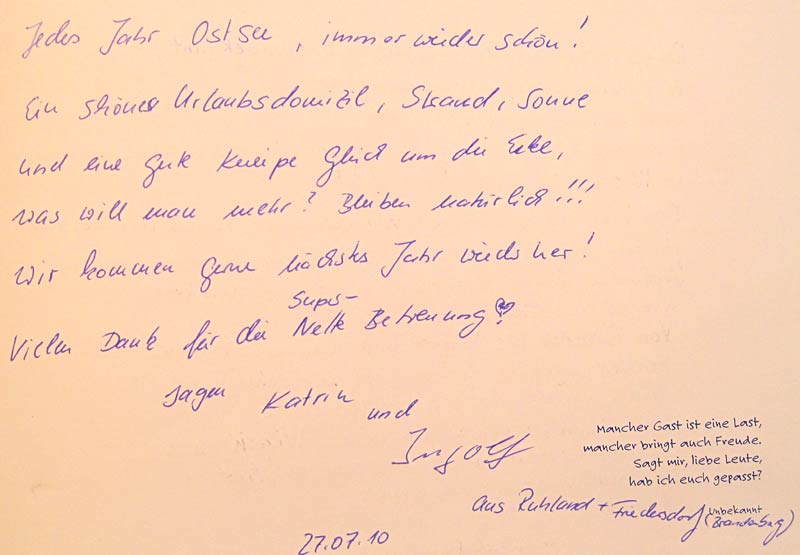 Jedes Jahr Ostsee, immer wieder schön!
Ein schönes Urlaubsdomizil, Strand, Sonne
und eine gute Kneipe Gleich um die Ecke,
was will man mehr? Bleiben natürlich!!!
Wir kommen gerne nächstes Jahr wieder her!
Super-
Vielen Dank für die Nette Betreuung
sagen Katrin und
Ingolf
Mancher Gast ist eine Last,
mancher bringt auch Freude.
Sagt mir, liebe Leute,
hab ich euch gepasst?
Unbekannt
aus Ruhland + Friedersdorf (Brandenburg)
27.07.10